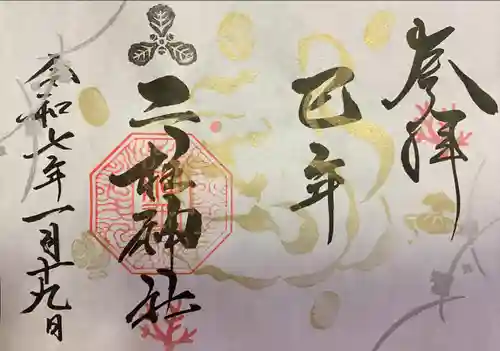 奉拝
巳年
二柱神社
令和七年一月十九日